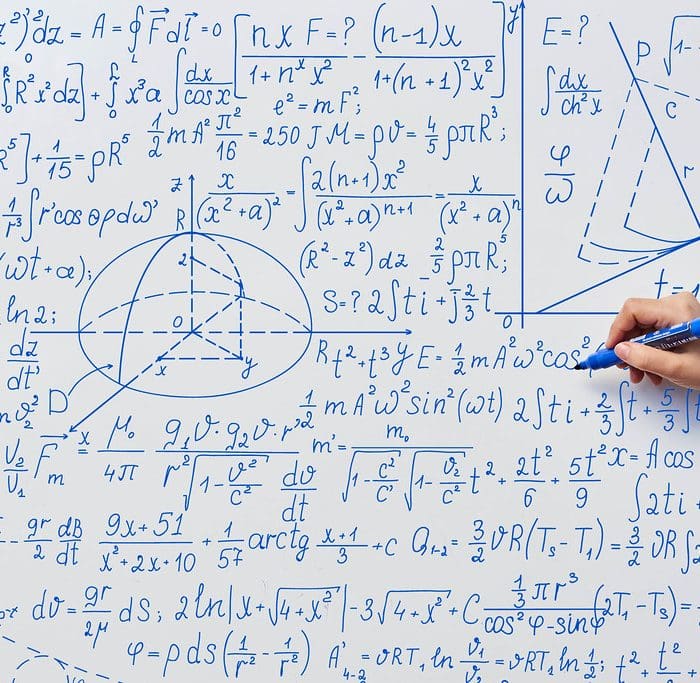 z²)²dz = A = ∮ F⃗ dl⃗ = 0 [nxF=?/(1+nˣx²) − (n−1)x/(1+(n+1)²x²)] y E=? P
∫R²x²dz] + ∫x³a ∫dx/cosx e² = mF²; ∫dx/ch²x c
R⁵] + 1/15 = ρR⁵ 1/2 mA² π²/16 = 250 J M = ρϑ = 4/5 ρπR³; φ/ω r
1/r³ ∫r'cosθρdω' z R x/(x²+a)² = ∫2(n+1)x²/(x²+a)ⁿ⁺¹ = x/(x²+a)ⁿ
(ωt+α); 2 (R²−z²)dz 2/5 ρπR⁵;
ln2; 0 S=? 2∫ti + j2/3t 0 t=
dz/dt' x y Rt²+t³y E = 1/2 mA²ω²cos²
D 1/2 mA²ω²sin²(ωt) 2∫ti + 2/3∫t + 5/3∫
U₂/U₁ F⃗m x = μ₀/4π g₁ϑ·g₂ϑ·r'/(r²√(1−ϑ²/c²)) dϑ/dt m' = m₀/√(1−c²/c') √(1−ϑ₂/c²) t² + 2t²/6 + 5t²/9 x = A cos
∫2ti +
− gr/2 dB/dt 9x+51/(x²+2x+10) + 1/57 arctg (x+1)/3 + c Q₁₋₂ = 3/2 ϑR(Ts−T₁) = 3/2 ϑR∫
dϑ = gr/2μ dS; 2ln|x+√(4+x²)|−3√(4+x²)+C (1/3 πr³)/(cos²φ−sinφ) (2T₁−Ts) =
φ = ρds(1/r² − 1/r²) A'₄₋₂ = ϑRT₁ ln ϑ₁/ϑ₂ = ϑRT₁ ln 1/2; t² + t²